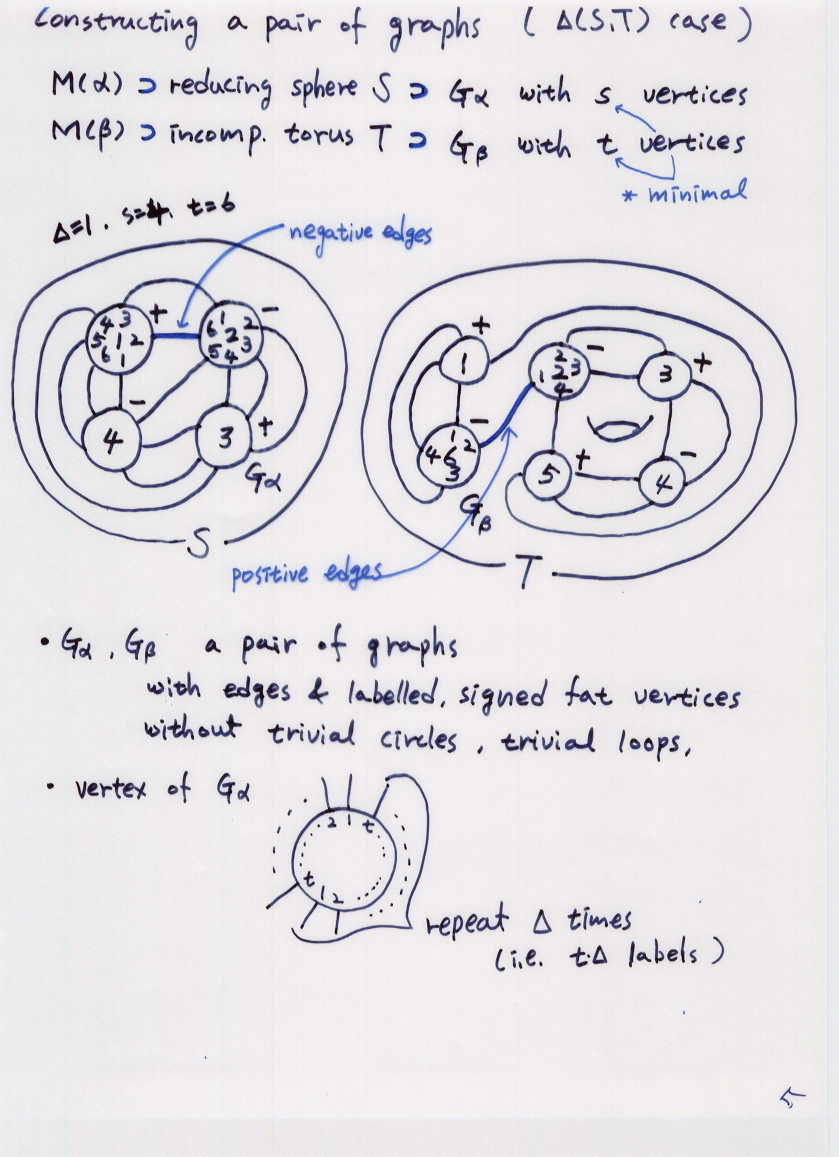 Constructing a pair of graphs ( Δ(S,T) case )
M(α) ⊃ reducing sphere S ⊃ Gα with s vertices
M(β) ⊃ incomp. torus T ⊃ Gβ with t vertices
* minimal
Δ=1, s=4, t=6
negative edges
4 3 + 1 2 -
5 1 2 6 2 3
6 1 5 4
- 4 3 +
Gα
S
+
1 2 - 3 +
1 2 3
4
- 1 2
4 6
3
5 + 4 -
Gβ
T
positive edges
• Gα, Gβ a pair of graphs
with edges & labelled, signed fat vertices
without trivial circles, trivial loops,
• vertex of Gα
2 1 t
t 1 2
repeat Δ times
(i.e. t·Δ labels)
5